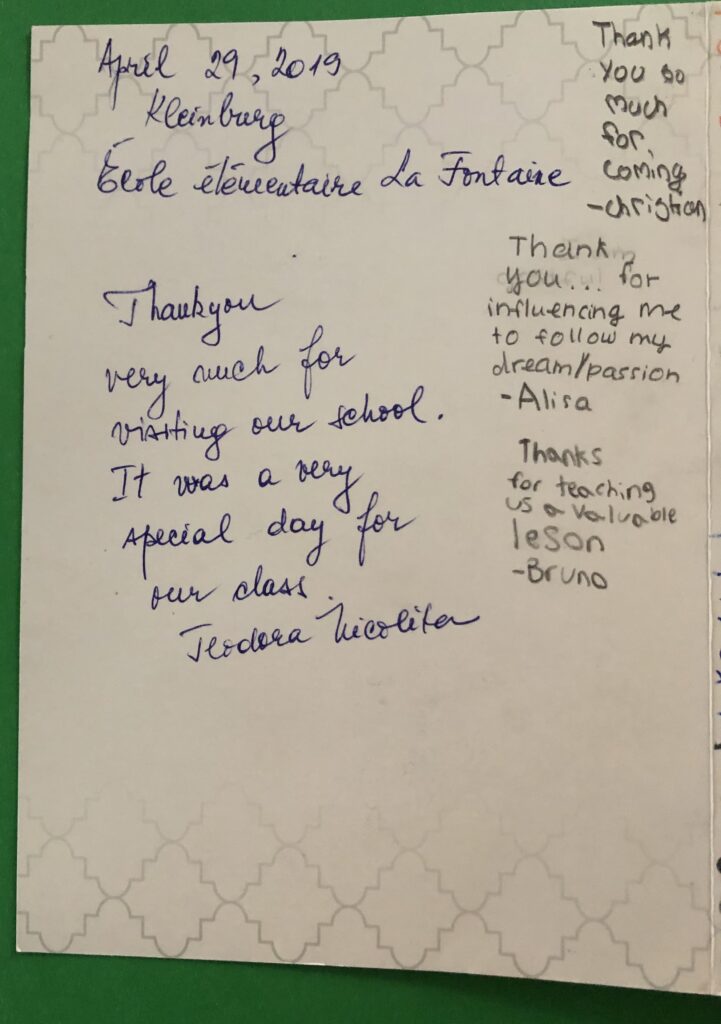 April 29, 2019
Kleinburg
École élémentaire La Fontaine
Thankyou
very much for
visiting our school.
It was a very
special day for
our class.
Teodora Nicolita
Thank
you so
much
for
coming
-christian
Thank
you... for
influencing me
to follow my
dream/passion
-Alisa
Thanks
for teaching
us a valuable
leson
-Bruno